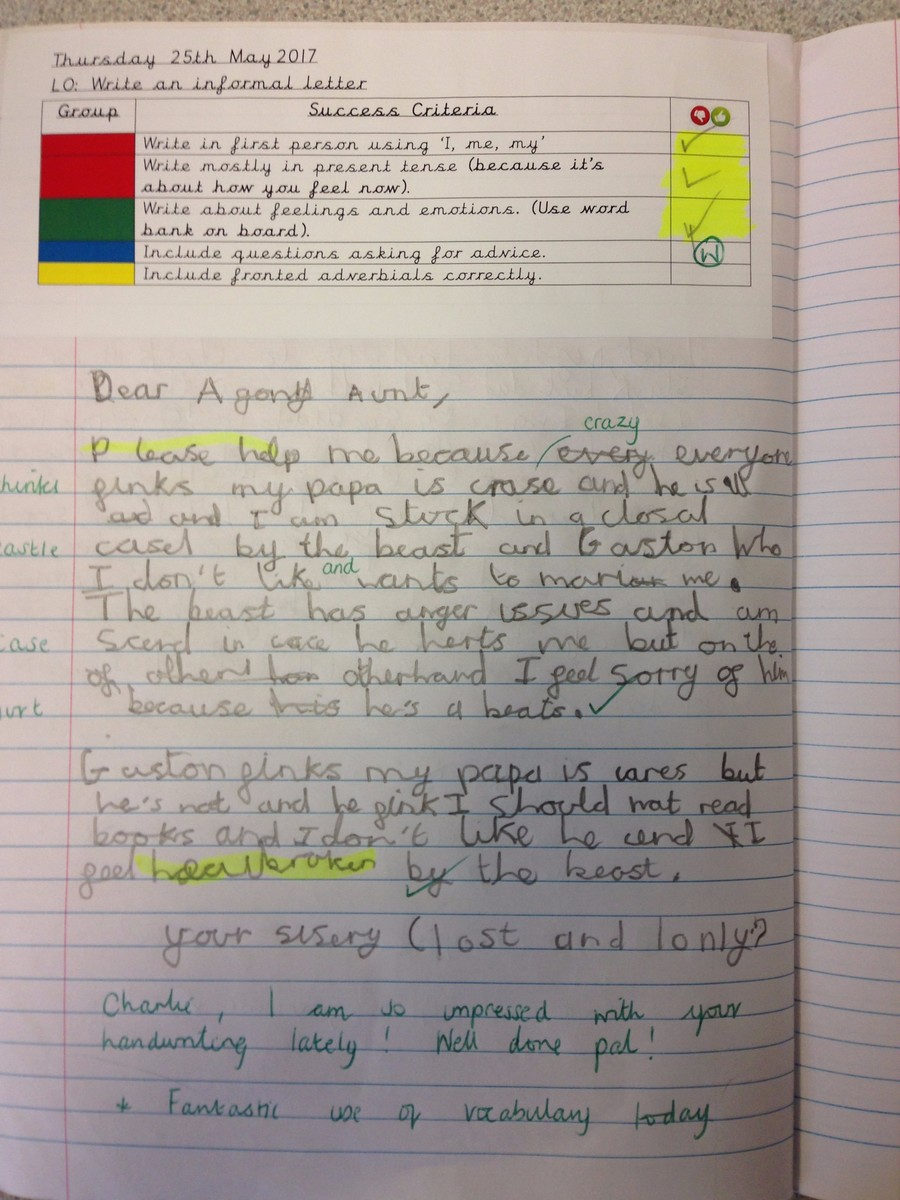 Thursday 25th May 2017
LO: Write an informal letter
Group Success Criteria
Write in first person using 'I, me, my'
Write mostly in present tense (because it's
about how you feel now).
Write about feelings and emotions. (Use word
bank on board).
Include questions asking for advice.
W
Include fronted adverbials correctly.
Dear Agony Aunt,
crazy
Please help me because every everyone
thinks ginks my papa is crase and he is
and and I am stuck in a closal
castle casel by the beast and Gaston who
I don't like and wants to me.
The beast has anger issues and am
case scerd in case he herts me but on the
of other otherhand I feel sorry of him
hurt because he's a beats.
Gaston ginks my papa is cares but
he's not and he gink I should nat read
books and I don't like he cend I
geel by the beast.
your sisery (lost and lonly?
Charlie, I am so impressed with your
handwriting lately! Well done pal!
* Fantastic use of vocabulary today